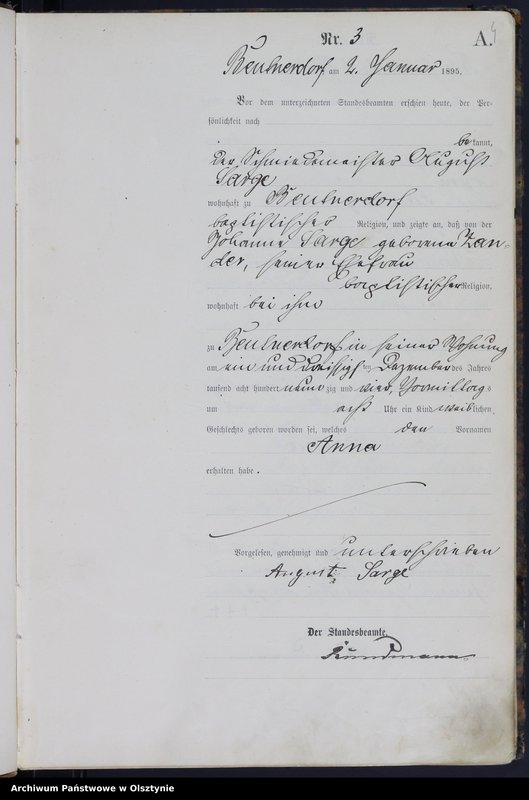 Nr. 3
A.
4
Beutnerdorf, am 2. Januar 1895.
Vor dem unterzeichneten Standesbeamten erschien heute, der Per-
sönlichkeit nach
bekannt,
der Schmiedemeister August
Sarge
wohnhaft zu Beutnerdorf
baptistischer Religion, und zeigte an, daß von der
Johanne Sarge geborene Zan-
der, seiner Ehefrau
baptistischer Religion,
wohnhaft bei ihm
zu Beutnerdorf in seiner Wohnung
am ein und dreissigsten Dezember des Jahres
tausend acht hundert neunzig und vier, Vormittags
um acht Uhr ein Kind weiblichen
Geschlechts geboren worden sei, welches den Vornamen
Anna
erhalten habe.
Vorgelesen, genehmigt und unterschrieben
August Sarge
Der Standesbeamte.
Archiwum Państwowe w Olsztynie